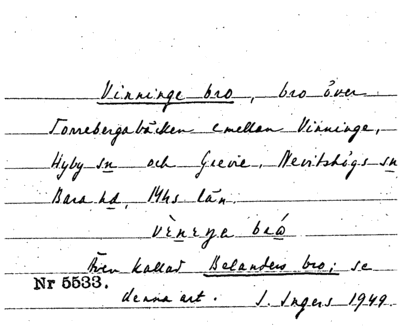 Vinninge bro, bro över
Torrebergabäcken emellan Vinninge,
Hyby sn och Grevie, Nevitshögs sn
Bara hd, Mhs län.
vèneya brá
Även kallad Belanders bro; se
Nr 5533.
denna art. I. Ingers 1949